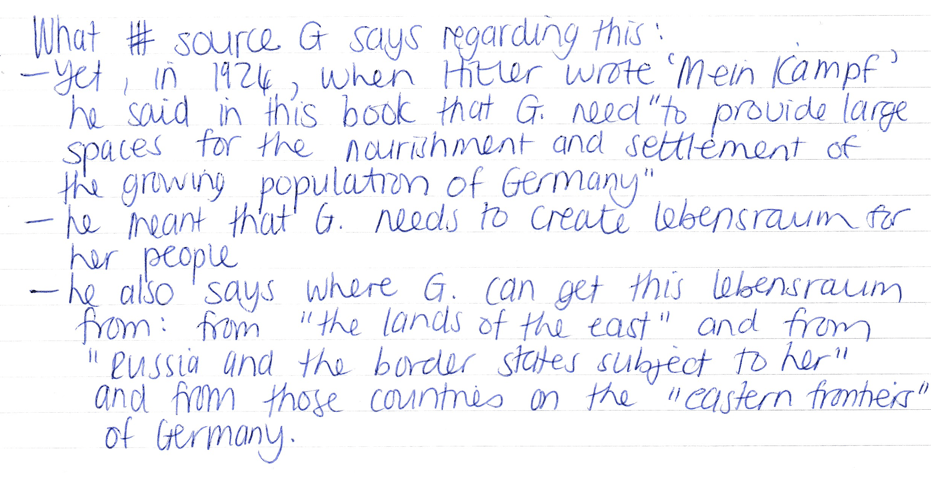 What # source G says regarding this:
- Yet, in 1924, when Hitler wrote 'Mein Kampf'
he said in this book that G. need "to provide large
spaces for the nourishment and settlement of
the growing population of Germany"
- he meant that G. needs to create lebensraum for
her people
- he also says where G. can get this lebensraum
from: from "the lands of the east" and from
"Russia and the border states subject to her"
and from those countries on the "eastern frontiers"
of Germany.